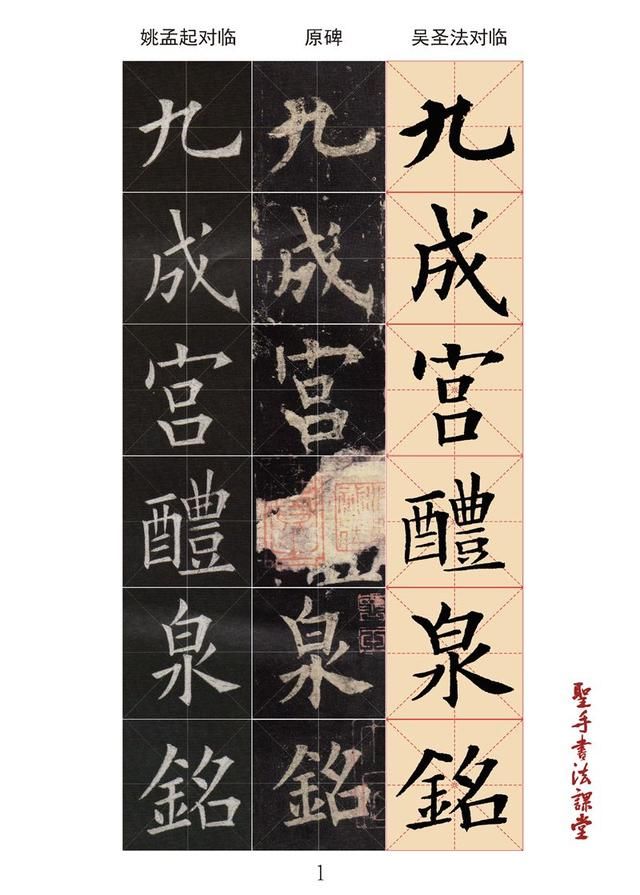 姚孟起对临 原碑 吴圣法对临
九 九 九
成 成 成
宫 宫 宫
醴 醴
泉 泉 泉
銘 銘 銘
聖手書法課堂
1